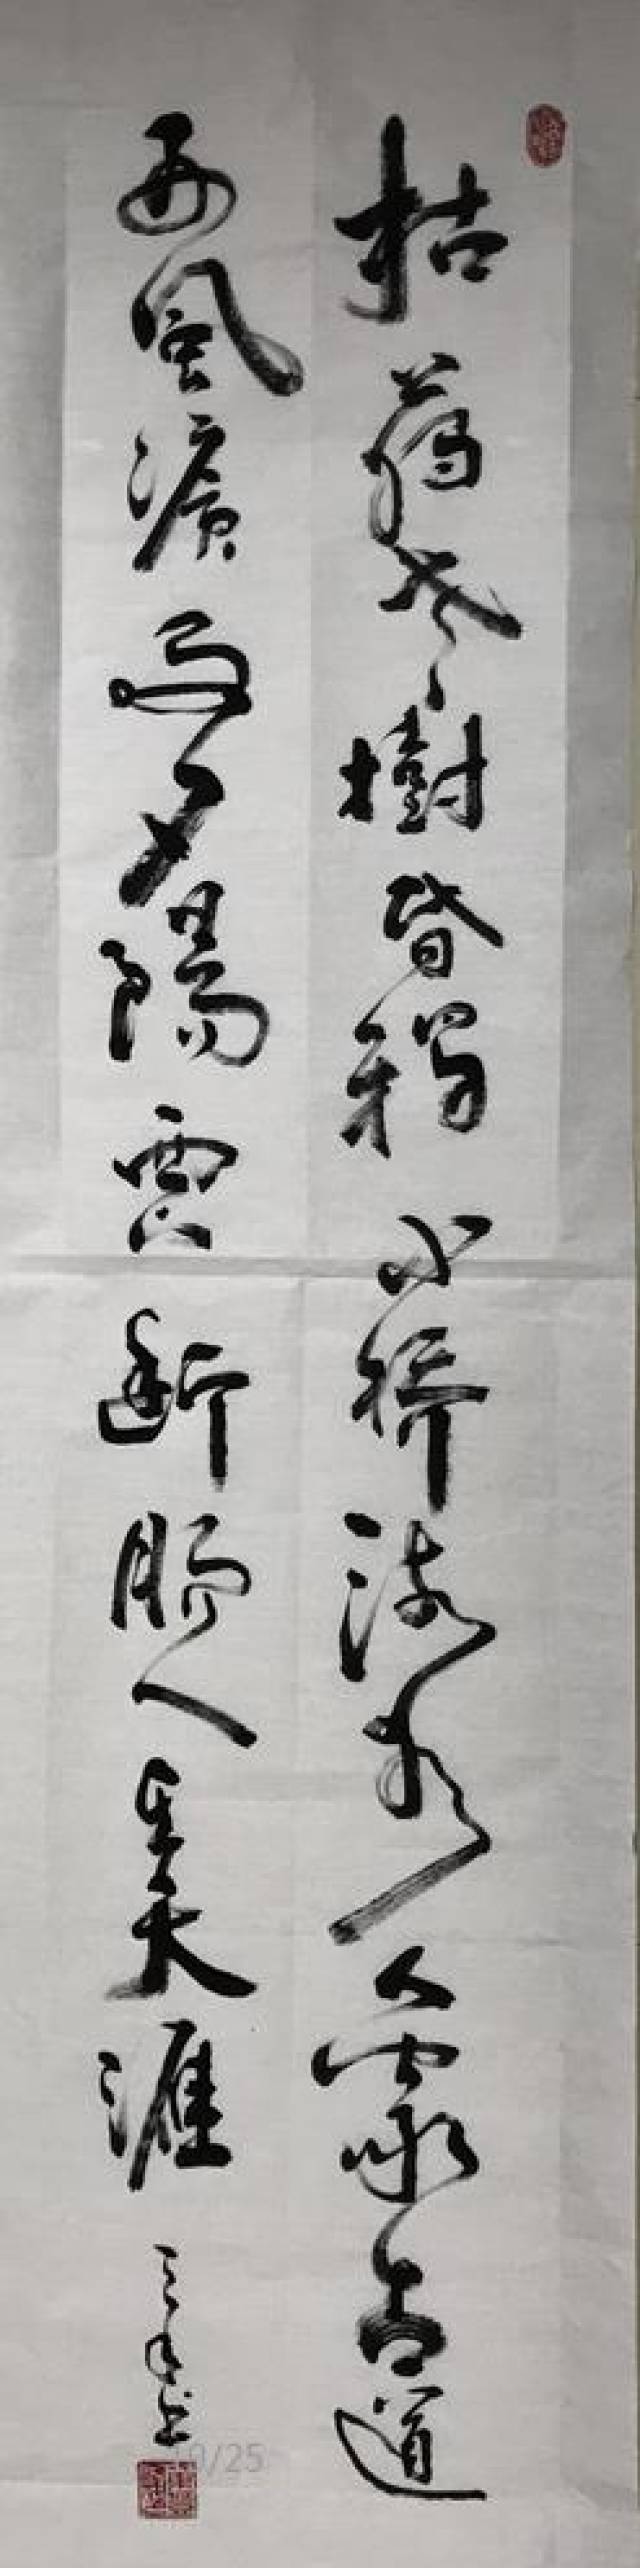 枯藤老樹昏鴉小橋流水人家古道
西風瘦馬夕陽西下斷腸人在天涯
10/25